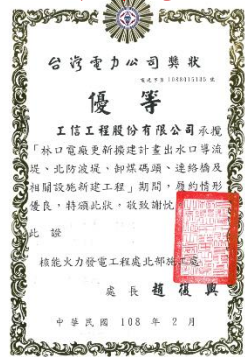 台灣電力公司獎狀
優等
工信工程股份有限公司承攬
「林口電廠更新擴建計畫出水口導流
堤、北防波堤、卸煤碼頭、連絡橋及
相關設施新建工程」期間,履約情形
優良,特頒此狀,敬致謝忱
此證
核能火力發電工程處北部施工處
處長 趙復興
中華民國 108 年 2 月